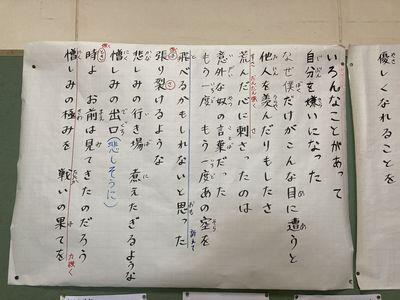 優しくなれることを
いろんなことがあって
自分を嫌いになった
なぜ僕だけがこんな目に遭うと
他人を羨んだりもしたさ
荒んだ心に刺さったのは
意外な奴の言葉だった
もう一度 もう一度あの空を
飛べるかもしれないと思った
張り裂けるような
悲しみの行き場 煮えたぎるような
憎しみの出口(悲しそうに)
時よ お前は見てきたのだろう
憎しみの極みを 戦いの果てを
力強く